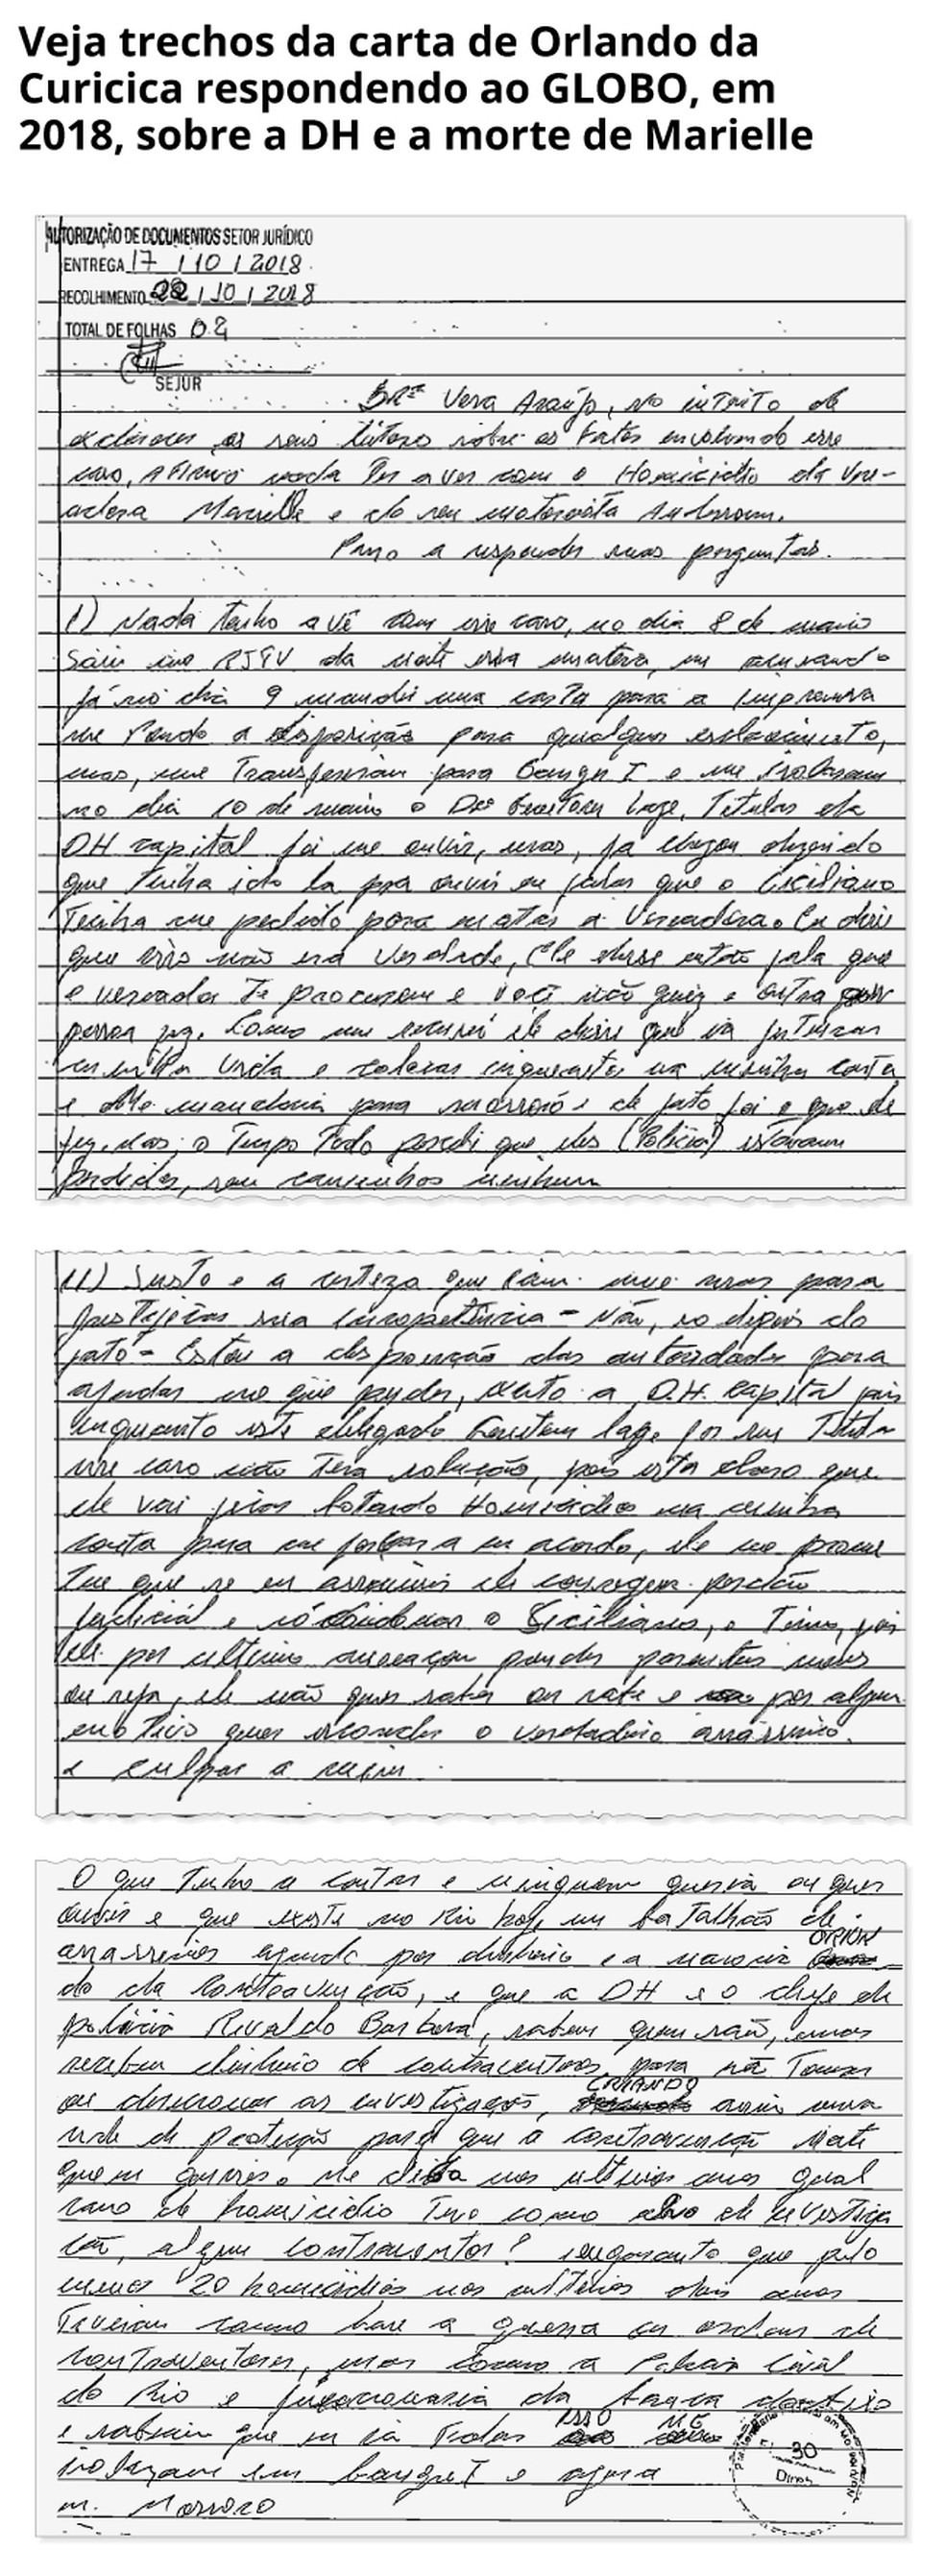 Veja trechos da carta de Orlando da
Curicica respondendo ao GLOBO, em
2018, sobre a DH e a morte de Marielle
AUTORIZAÇÃO DE DOCUMENTOS SETOR JURÍDICO
ENTREGA 17 / 10 / 2018
RECOLHIMENTO 22 / 10 / 2018
TOTAL DE FOLHAS 02
SEJUR
SRª Vera Araújo, no intuito de
os seus leitores sobre os fatos envolvendo esse
caso, AFIRMO nada Ter a ver com o Homicídio da Vere-
adora Marielle e do seu motorista Anderson.
Passo a responder suas perguntas.
1) Nada tenho a vê com esse caso, no dia 8 de maio
Saiu no RJTV da noite essa matéria, me acusando
já no dia 9 mandei uma carta para a Imprensa
me pondo a disposição para qualquer esclarecimento,
mas, me Transferiram para Bangu I e me isolaram
no dia 10 de maio o Dr Geniton Lage, Titular da
DH capital foi me ouvir, mas, já chegou dizendo
que tinha ido la pra ouvir eu falar que o Siciliano
Tenha me pedido para matar a Vereadora. Eu disse
que isso não era verdade, Ele disse então fala que
o vereador Te procurou e você não quiz e outra
pessoa fez. Como me recusei ele disse que ia
minha vida e colocar inquéritos na minha conta
e me mandaria para mossoró e de fato foi o que ele
fez. Mas, o Tempo Todo percebi que eles (Polícia) estavam
perdidos, sem caminhos nenhum
11) Justo e a certeza que
justificar sua - Não, so depois do
fato - Estou a disposição das autoridades para
ajudar no que puder, exeto a D.H. Capital pois
enquanto este delegado Geniton Lage for seu Titular
esse caso não Terá solução, pois esta claro que
ele vai ficar botando Homicídios na minha
conta para me forçar a um acordo, ele me prome
Teu que se eu assumir ele consegue perdão
judicial e o Siciliano, o Time, pois
ele por ultimo ameaçou prender parentes meus
ou seja, ele não quer saber ou sabe e por algum
motivo quer esconder o verdadeiro assassino.
e culpar a mim.
O que Tenho a contar e ninguem queria ou quer
ouvir e que existe no Rio hoje um batalhão de
assassinos agindo por dinheiro e a maioria ORIUN
do da contravenção, e que a DH e o chefe de
policia Rivaldo Barbosa, sabem quem são, mas
recebem dinheiro de contraventores para não Tocar
ou direcionar as investigações, CRIANDO assim uma
rede de proteção para que a contravenção mate
quem quiser. Me diga nos ultimos anos qual
caso de homicídio Teve como alvo de investiga
ção, algum contraventor? enquanto que pelo
menos 20 homicídios nos ultimos dois anos
Tiveram como base a guerra ou ordem de
contraventores, mas como a Policia Civil
do Rio e
e sabiam que eu ia Falar ISSO ME
isolaram em bangu I e agora
em Mossoro
30